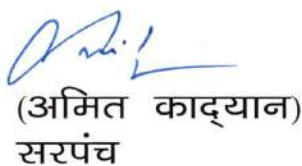 (अमित काद्यान)
सरपंच